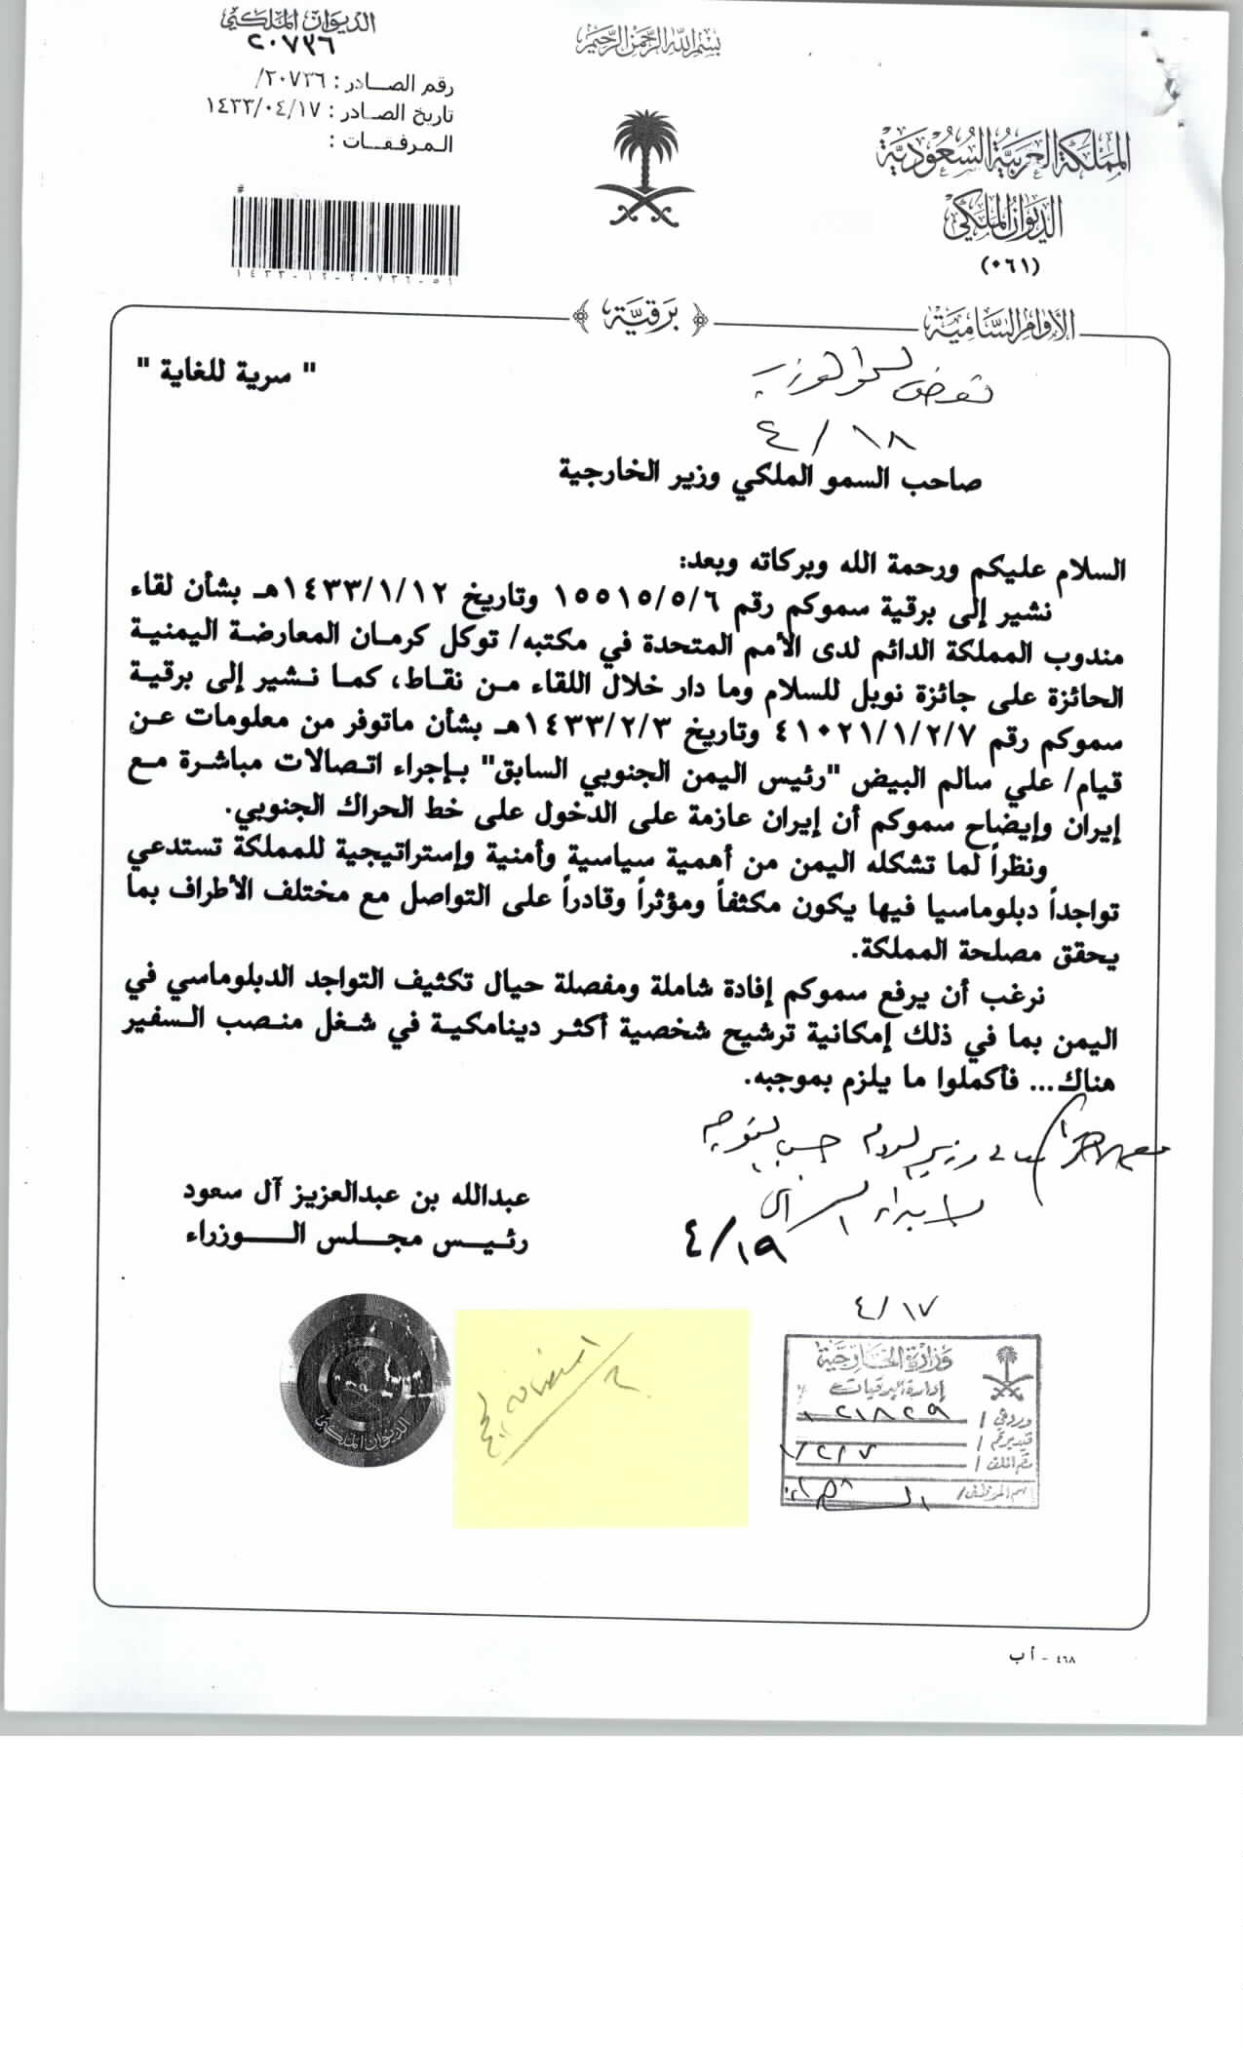 الديوان الملكي
٢٠٧٣٦
رقم الصادر : ٢٠٧٣٦/
تاريخ الصادر : ١٤٣٣/٠٤/١٧
المرفقات :
بسم الله الرحمن الرحيم
المملكة العربية السعودية
الديوان الملكي
(٠٦١)
الأوامر السامية
برقية
" سرية للغاية "
١٨ / ٤
صاحب السمو الملكي وزير الخارجية
السلام عليكم ورحمة الله وبركاته وبعد:
نشير إلى برقية سموكم رقم ١٥٥١٥/٥/٦ وتاريخ ١٤٣٣/١/١٢هـ بشأن لقاء
مندوب المملكة الدائم لدى الأمم المتحدة في مكتبه/ توكل كرمان المعارضة اليمنية
الحائزة على جائزة نوبل للسلام وما دار خلال اللقاء من نقاط، كما نشير إلى برقية
سموكم رقم ٤١٠٢١/١/٢/٧ وتاريخ ١٤٣٣/٢/٣هـ بشأن ماتوفر من معلومات عن
قيام/ علي سالم البيض "رئيس اليمن الجنوبي السابق" بإجراء اتصالات مباشرة مع
إيران وإيضاح سموكم أن إيران عازمة على الدخول على خط الحراك الجنوبي.
ونظراً لما تشكله اليمن من أهمية سياسية وأمنية وإستراتيجية للمملكة تستدعي
تواجداً دبلوماسيا فيها يكون مكثفاً ومؤثراً وقادراً على التواصل مع مختلف الأطراف بما
يحقق مصلحة المملكة.
نرغب أن يرفع سموكم إفادة شاملة ومفصلة حيال تكثيف التواجد الدبلوماسي في
اليمن بما في ذلك إمكانية ترشيح شخصية أكثر دينامكية في شغل منصب السفير
هناك... فأكملوا ما يلزم بموجبه.
١٩/ ٤
عبدالله بن عبدالعزيز آل سعود
رئيس مجلس الوزراء
١٧ / ٤
وزارة الخارجية
إدارة البرقيات
ورد في /
قيد برقم /
رقم الملف /
اسم الموظف /
الديوان الملكي
٤٦٨ - أ ب